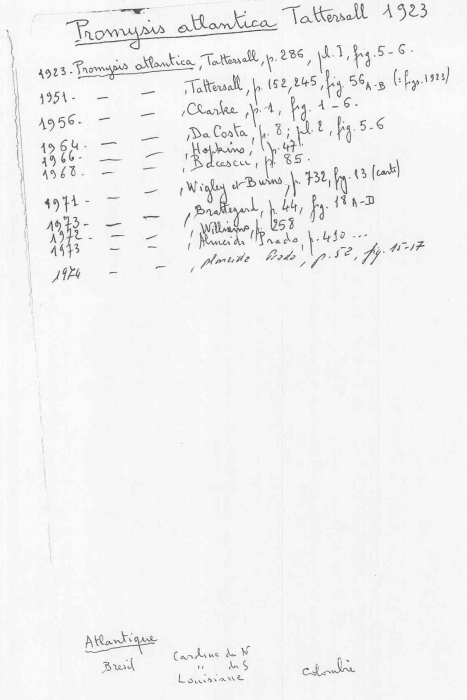 Promysis atlantica Tattersall 1923
1923. Promysis atlantica, Tattersall, p. 286, pl. I, fig. 5-6.
1951- — — , Tattersall, p. 152, 245, fig. 56 A-B (= figs. 1923)
1956. — — , Clarke, p. 1, fig. 1-6.
1964. — — , Da Costa, p. 8; pl. 2, fig. 5-6
1966. — — , Hopkins, p. 47.
1968. — — , Bacescu, p. 85.
1971- — — , Wigley et Burns, p. 732, fig. 13 (carte)
1973- — — , Brattegard, p. 44, fig. 18 A-D
1972- — — , Williams, p. 258
1973 — — , Almeida Prado, p. 410 ...
1974 — — , Almeida Prado, p. 52, fig. 15-17
Atlantique
Bresil Caroline du N Colombie
" du S
Louisiane